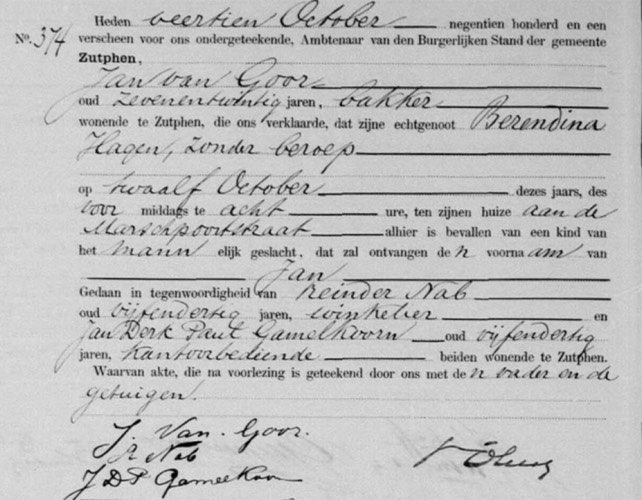 Heden veertien October negentien honderd en een
No. 374 verscheen voor ons ondergeteekende, Ambtenaar van den Burgerlijken Stand der gemeente
Zutphen,
Jan van Goor
oud zevenentwintig jaren, bakker
wonende te Zutphen, die ons verklaarde, dat zijne echtgenoot Berendina
Hagen, zonder beroep
op twaalf October dezes jaars, des
voor middags te acht ure, ten zijnen huize aan de
Marschpoortstraat alhier is bevallen van een kind van
het mann elijk geslacht, dat zal ontvangen de n voorna am van
Jan
Gedaan in tegenwoordigheid van Reinder Nab
oud vijfendertig jaren, winkelier en
Jan Derk Paul Gamelkoorn oud vijfendertig
jaren, kantoorbediende beiden wonende te Zutphen.
Waarvan akte, die na voorlezing is geteekend door ons met de n vader en de
getuigen.
J. Van. Goor.
R Nab
J D P Gamelkoorn